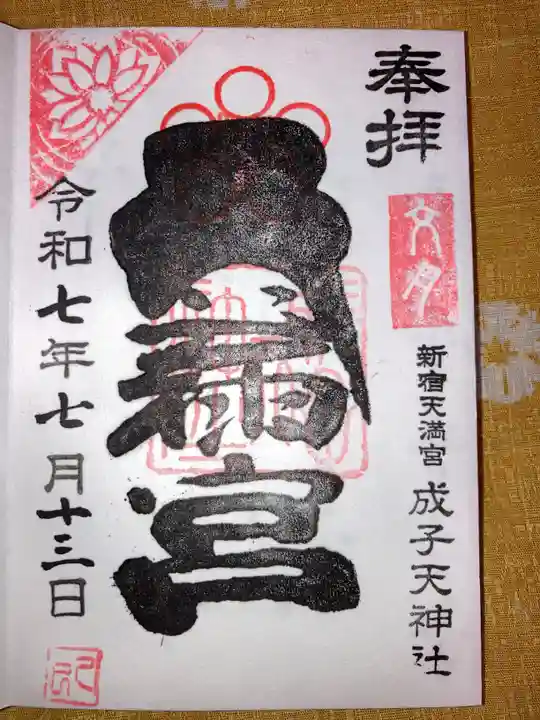 奉拝
文月
新宿天満宮
成子天神社
宮
令和七年七月十三日